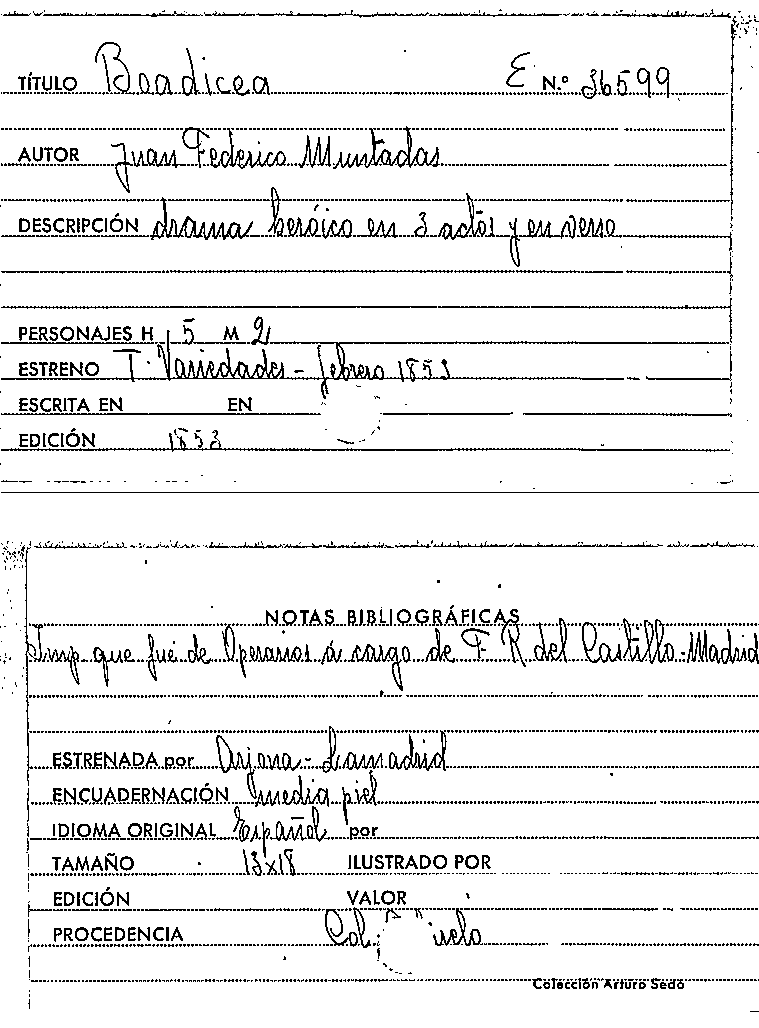 TÍTULO Boadicea E N.º 36599
AUTOR Juan Federico Muntadas
DESCRIPCIÓN drama heróico en 3 actos y en verso
PERSONAJES H 15 M 2
ESTRENO T. Variedades - febrero 1853
ESCRITA EN EN
EDICIÓN 1853
NOTAS BIBLIOGRÁFICAS
Imp. que fué de Operarios á cargo de F. R. del Castillo - Madrid
ESTRENADA por Arjona - Lamadrid
ENCUADERNACIÓN media piel
IDIOMA ORIGINAL Español por
TAMAÑO 13x18 ILUSTRADO POR
EDICIÓN VALOR
PROCEDENCIA Col.
Colección Arturo Sedó